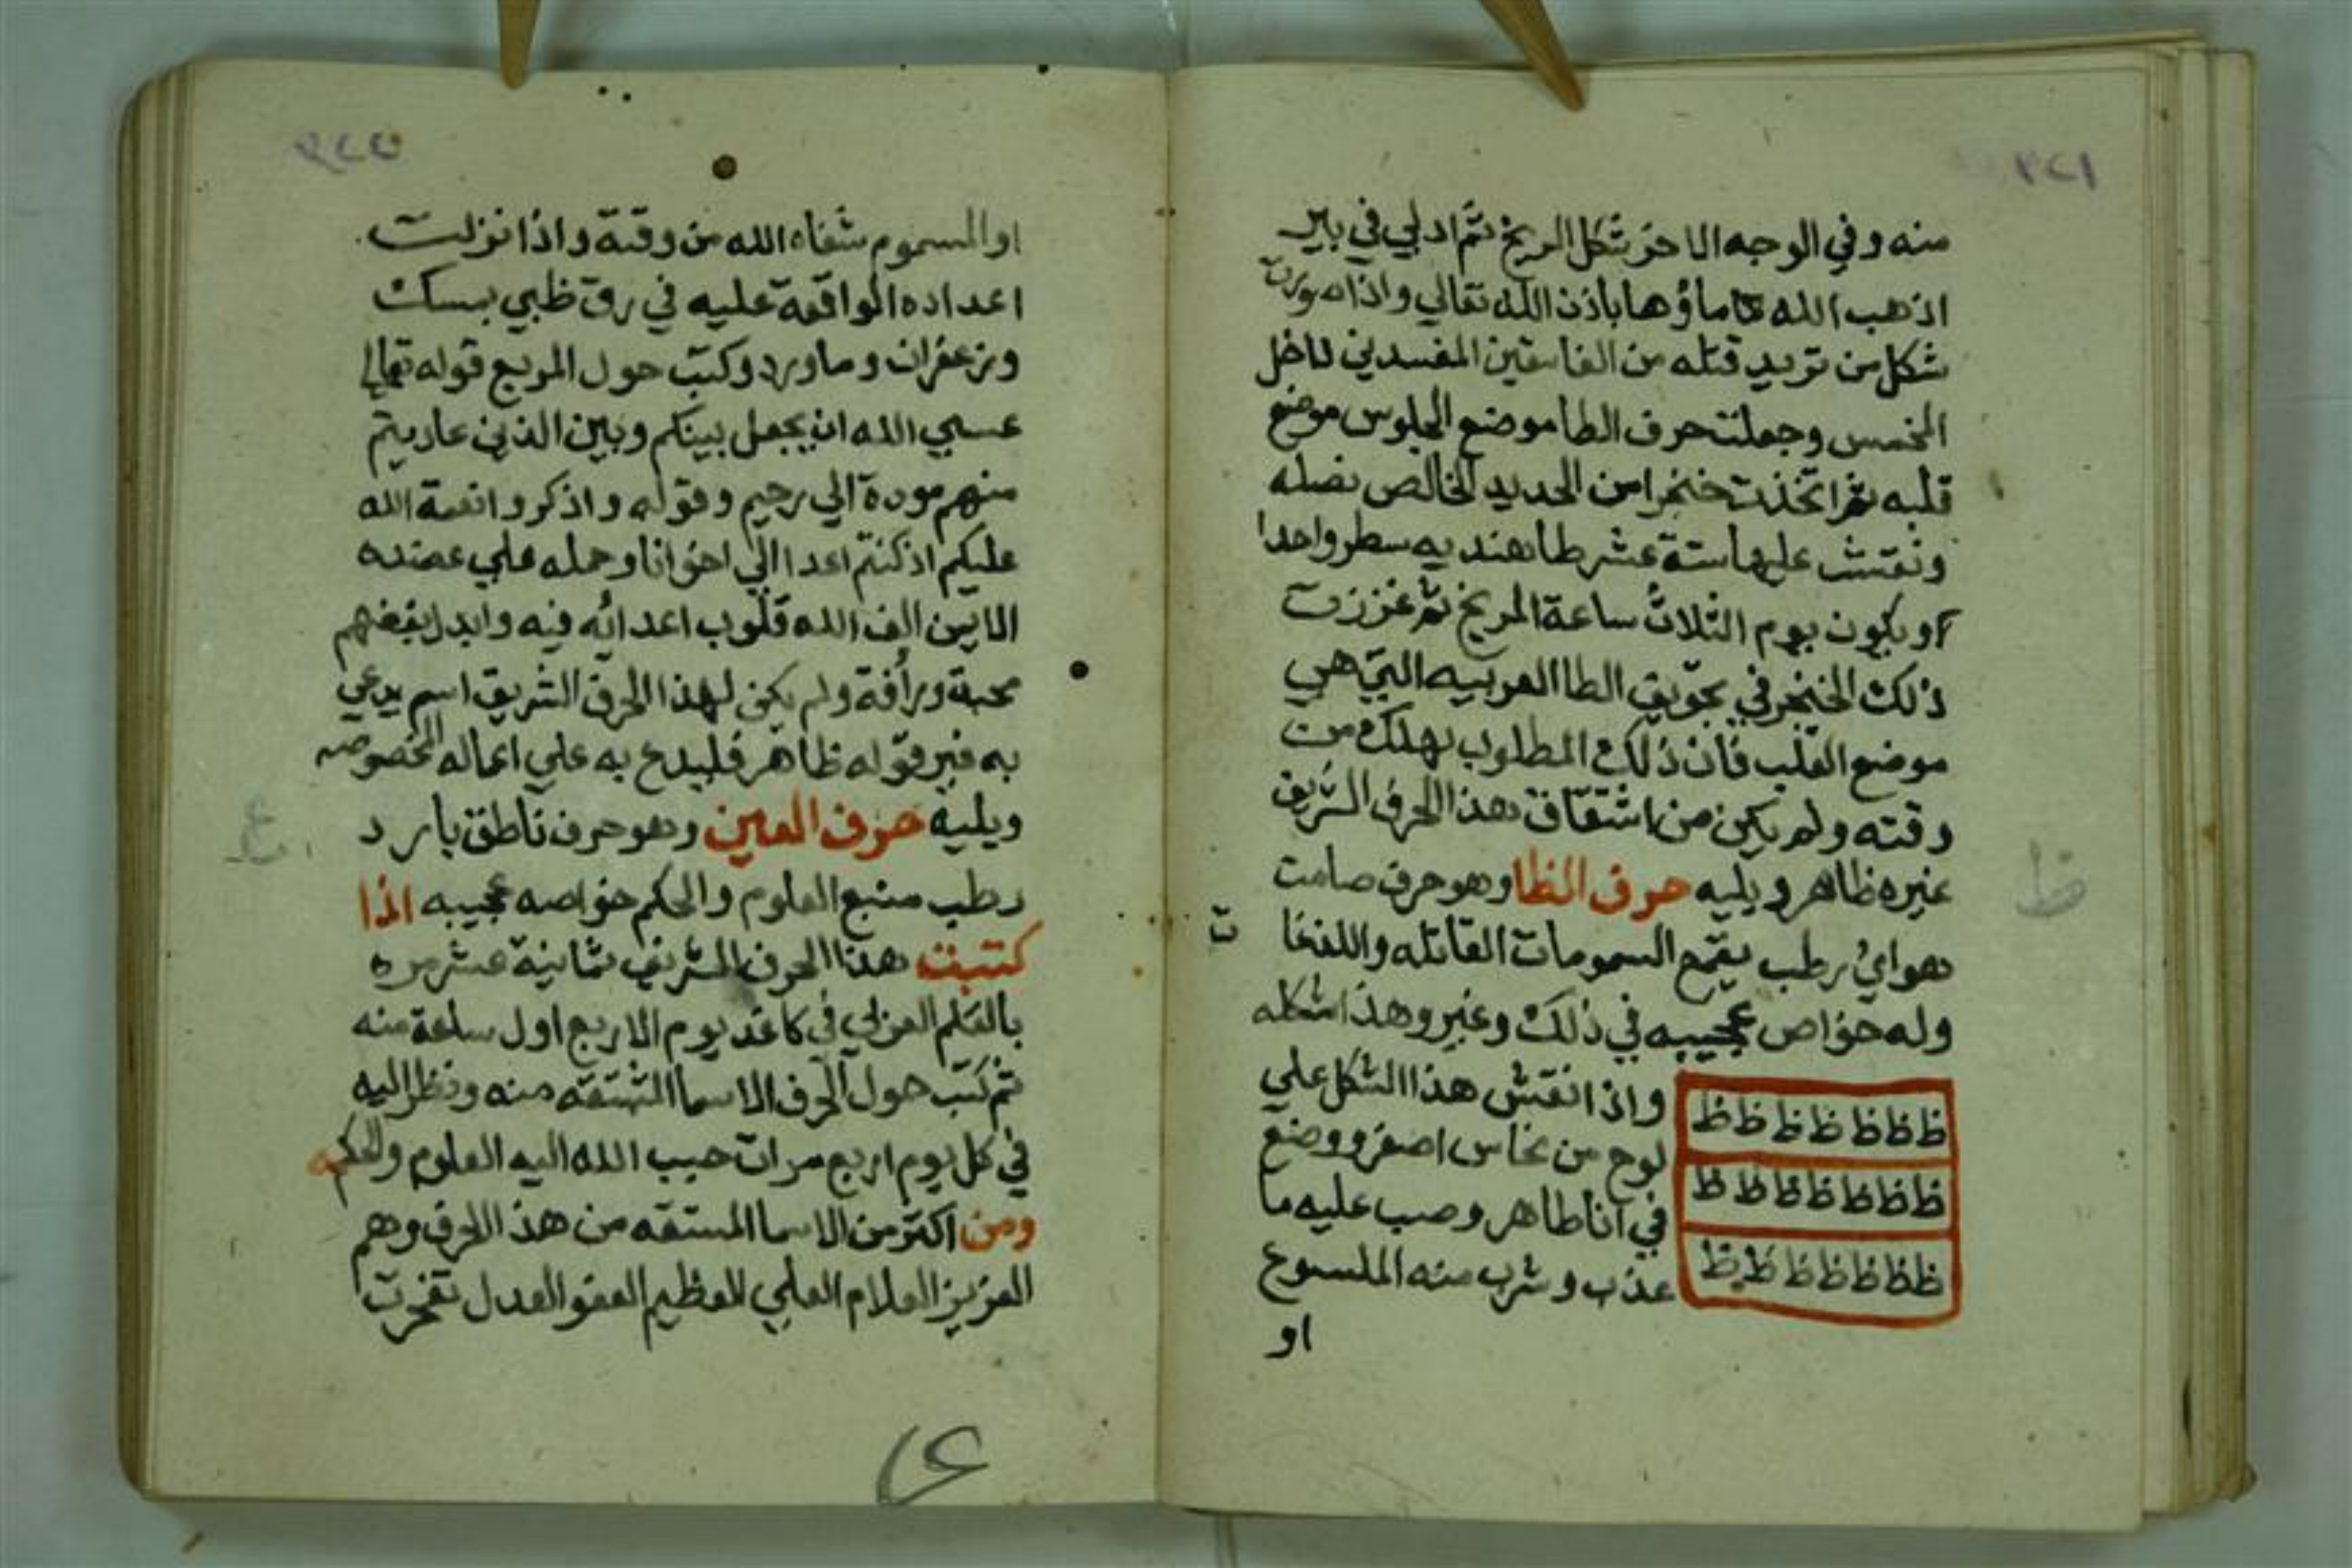 منه وفي الوجه الاخر شكل المريخ ثم ادلي في بير
اذهب الله ماؤها باذن الله تعالي واذا صورت
شكل من تريد قتله من الفاسقين المفسدين داخل
المخمس وجعلت حرف الطا موضع الجلوس موضع
قلبه ثم اتخذت خنجرا من الحديد الخالص نصله
ونقشت عليها ستة عشر طا هنديه سطر واحدا
ويكون يوم الثلاث ساعة المريخ ثم غززت
ذلك الخنجر في تجويف الطا العربيه التي هي
موضع القلب فان ذلك المطلوب يهلك من
وقته ولم يكن من اشتقاق هذا الحرف الشريف
غيره ظاهر ويليه حرف الظا وهو حرف صامت
هواي رطب يقمع السمومات القاتله واللفخات
وله خواص عجيبه في ذلك وغير وهذا شكله
ظ ظ ظ ظ ظ ظ ظ
ظ ظ ظ ظ ظ ظ ظ
ظ ظ ظ ظ ظ ظ ظ
واذا نقش هذا الشكل علي
لوح من نحاس اصفر ووضع
في انا طاهر وصب عليه ما
عذب وشرب منه الملسوع
او
ظ
او المسموم شفاه الله من وقته واذا نزلت
اعداده الواقعة عليه في رق ظبي بمسك
وزعفران وماورد وكتب حول المربع قوله تعالي
عسي الله ان يجعل بينكم وبين الذين عاديتم
منهم مودة الي رحيم وقوله واذكروا نعمة الله
عليكم اذ كنتم اعدا الي اخوانا وحمله علي عضده
الايمن الف الله قلوب اعدائه فيه وابدل بغضهم
محبة ورأفة ولم يكن لهذا الحرف الشريف اسم يدعي
به غير قوله ظاهر فليدع به علي اعماله المخصوصه
ويليه حرف العين وهو حرف ناطق بارد
رطب منبع العلوم والحكم خواصه عجيبه اذا
كتبت هذا الحرف الشريف ثمانية عشر مره
بالقلم العربي في كاغد يوم الاربع اول ساعة منه
ثم كتب حول الحرف الاسما المشتقه منه ونظر اليه
في كل يوم اربع مرات حبب الله اليه العلوم والحكمه
ومن اكثر من الاسما المستقه من هذ الحرف وهم
العزيز العلام العلي العظيم العفو العدل تفجرت
ع